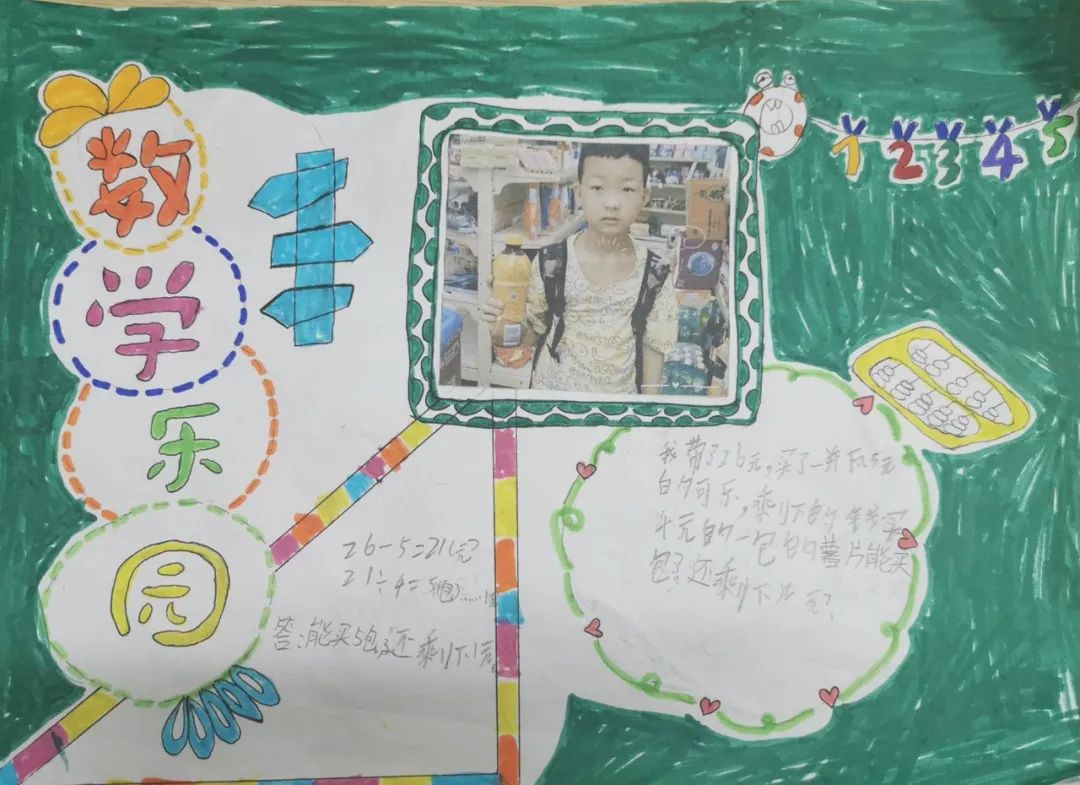 数
学
乐
园
1 2 3 4 5
我带了26元,买了一并瓦5元
白勺可乐,剩下的钱买
4元白勺一包白勺薯片能买
包?还剩下几元?
26-5=21(元)
21÷4=5(包)……1(元)
答:能买5包,还剩下1元。